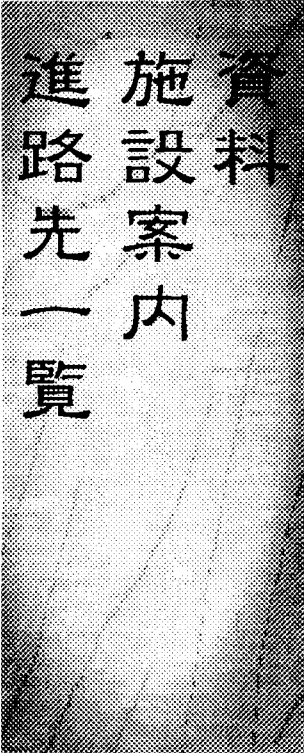 資料
施設案内
進路先一覧